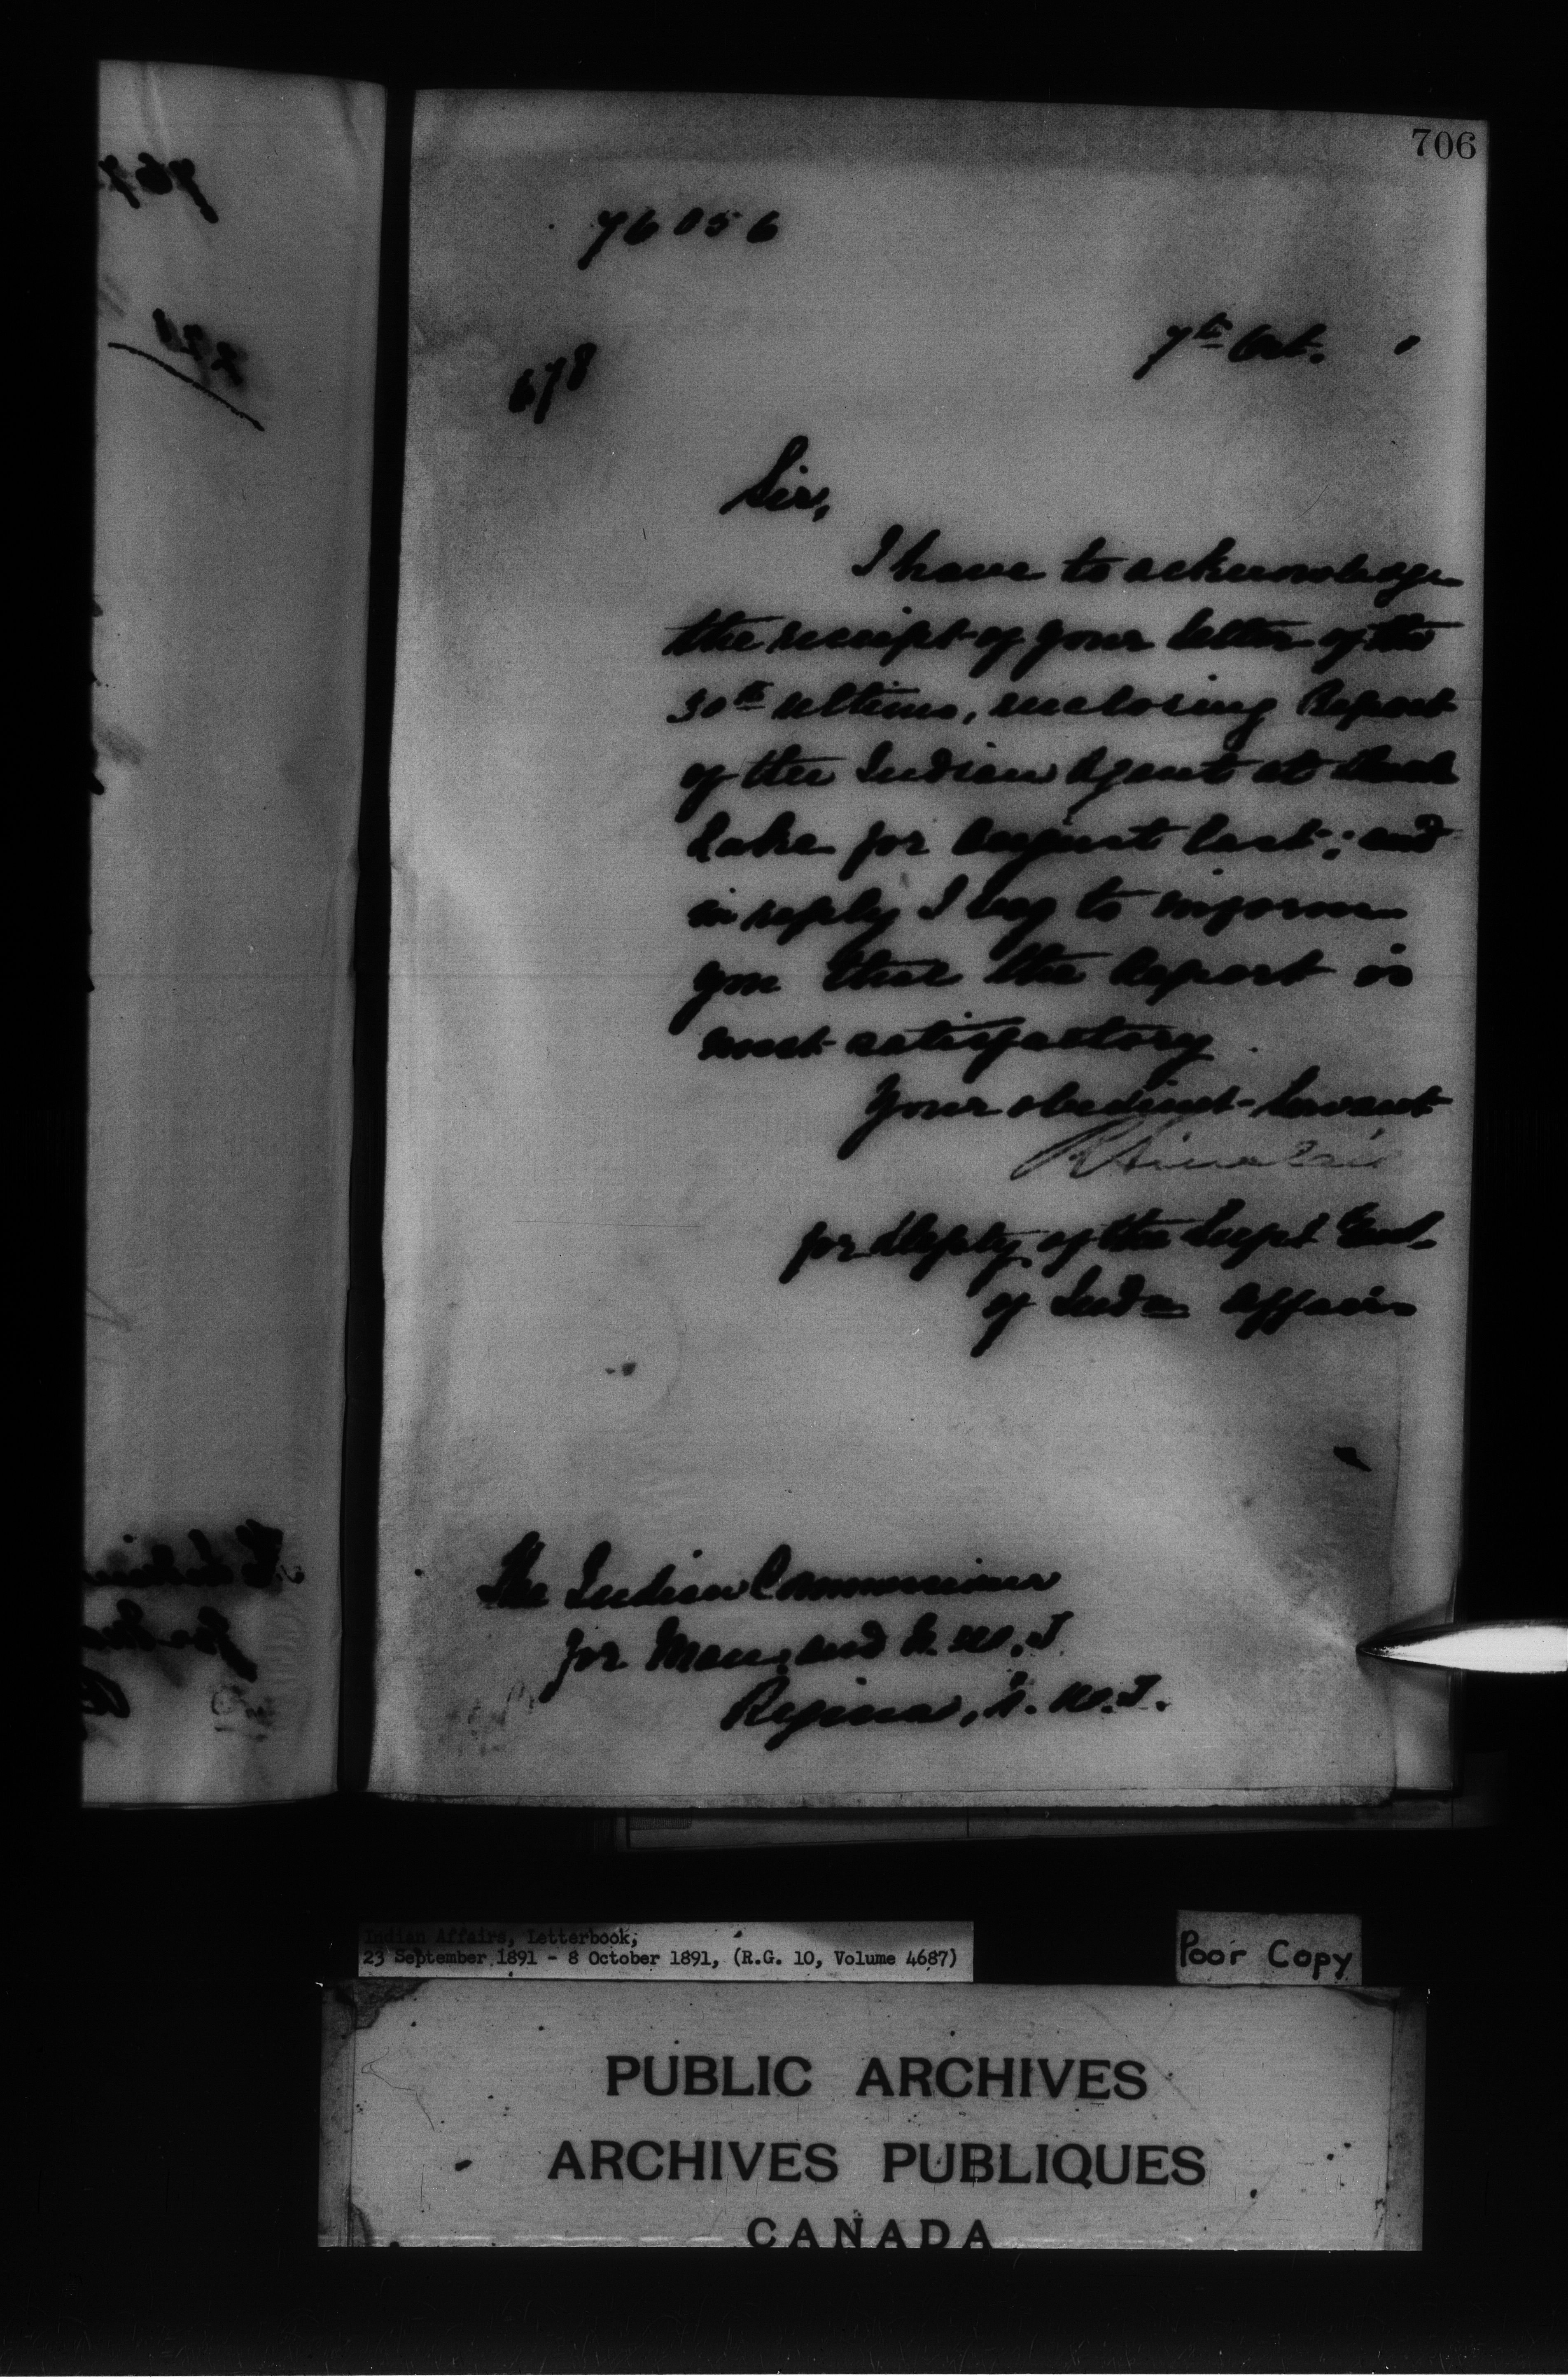 706
76056
7th Oct.
678
Sir,
I have to acknowledge
the receipt of your letter of the
30th ultimo, enclosing Report
of the Indian Agent at Duck
Lake for August last; and
in reply I beg to inform
you that the Report is
most satisfactory.
Your obedient Servant
R Sinclair
for Depty of the Supt Genl.
of Indn Affairs
The Indian Commissioner
for Man. and N.W.T.
Regina, N.W.T.
Indian Affairs, Letterbook,
23 September 1891 - 8 October 1891, (R.G. 10, Volume 4687)
Poor Copy
PUBLIC ARCHIVES
ARCHIVES PUBLIQUES
CANADA